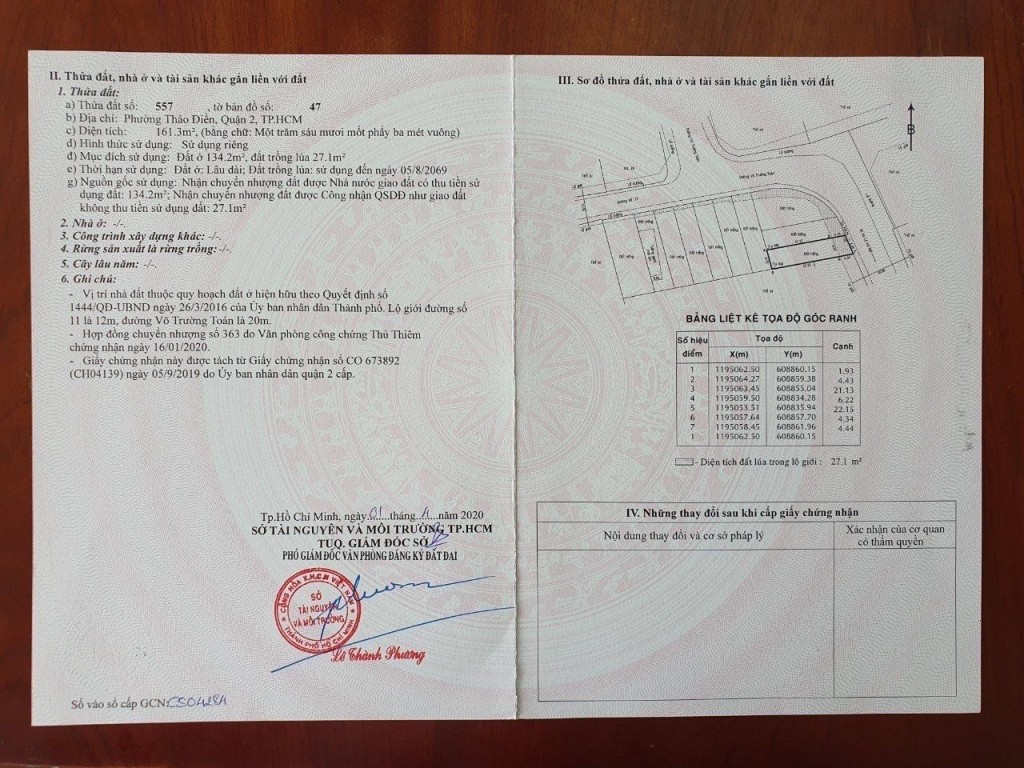 II. Thửa đất, nhà ở và tài sản khác gắn liền với đất
1. Thửa đất:
a) Thửa đất số: 557 , tờ bản đồ số: 47
b) Địa chỉ: Phường Thảo Điền, Quận 2, TP.HCM
c) Diện tích: 161.3m², (bằng chữ: Một trăm sáu mươi mốt phẩy ba mét vuông)
d) Hình thức sử dụng: Sử dụng riêng
đ) Mục đích sử dụng: Đất ở 134.2m², đất trồng lúa 27.1m²
e) Thời hạn sử dụng: Đất ở: Lâu dài; Đất trồng lúa: sử dụng đến ngày 05/8/2069
g) Nguồn gốc sử dụng: Nhận chuyển nhượng đất được Nhà nước giao đất có thu tiền sử
dụng đất: 134.2m²; Nhận chuyển nhượng đất được Công nhận QSDĐ như giao đất
không thu tiền sử dụng đất: 27.1m²
2. Nhà ở: -/-.
3. Công trình xây dựng khác: -/-.
4. Rừng sản xuất là rừng trồng: -/-.
5. Cây lâu năm: -/-.
6. Ghi chú:
- Vị trí nhà đất thuộc quy hoạch đất ở hiện hữu theo Quyết định số
1444/QĐ-UBND ngày 26/3/2016 của Ủy ban nhân dân Thành phố. Lộ giới đường số
11 là 12m, đường Võ Trường Toản là 20m.
- Hợp đồng chuyển nhượng số 363 do Văn phòng công chứng Thủ Thiêm
chứng nhận ngày 16/01/2020.
- Giấy chứng nhận này được tách từ Giấy chứng nhận số CO 673892
(CH04139) ngày 05/9/2019 do Ủy ban nhân dân quận 2 cấp.
Tp.Hồ Chí Minh, ngày 01 tháng 4 năm 2020
SỞ TÀI NGUYÊN VÀ MÔI TRƯỜNG TP.HCM
TUQ. GIÁM ĐỐC SỞ
PHÓ GIÁM ĐỐC VĂN PHÒNG ĐĂNG KÝ ĐẤT ĐAI
CỘNG HÒA X.H.C.N VIỆT NAM
SỞ
TÀI NGUYÊN
VÀ MÔI TRƯỜNG
THÀNH PHỐ HỒ CHÍ MINH
Lê Thành Phương
Số vào sổ cấp GCN:CS04284
III. Sơ đồ thửa đất, nhà ở và tài sản khác gắn liền với đất
B
BẢNG LIỆT KÊ TỌA ĐỘ GÓC RANH
Số hiệu điểm Tọa độ Cạnh
X(m) Y(m)
1 1195062.50 608860.15
1.93
2 1195064.27 608859.38
4.43
3 1195063.45 608855.04
21.13
4 1195059.50 608834.28
6.22
5 1195053.51 608835.94
22.15
6 1195057.64 608857.70
4.34
7 1195058.45 608861.96
4.44
1 1195062.50 608860.15
- Diện tích đất lúa trong lộ giới : 27.1 m²
IV. Những thay đổi sau khi cấp giấy chứng nhận
Nội dung thay đổi và cơ sở pháp lý
Xác nhận của cơ quan
có thẩm quyền